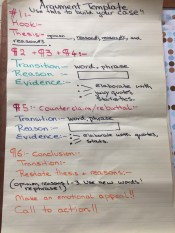 Argument Template
Use this to build your case!!
¶1:-
Hook:-
Thesis:- opinion, reason1, reason2, and
reason3.
¶2 = ¶3 = ¶4:-
Transition:- word, phrase
Reason:-
Evidence:- elaborate with
your quotes
statistics.
¶5:- counterclaim/rebuttal:-
Transition:- word, phrase
Reason:-
Evidence:- elaborate with quotes,
stats.
¶6- Conclusion:-
Transition:
Restate thesis + reasons:-
(opinion, reasons 1-3 Use new words!
rephrase!)
Make an emotional appeal!!
Call to action!!